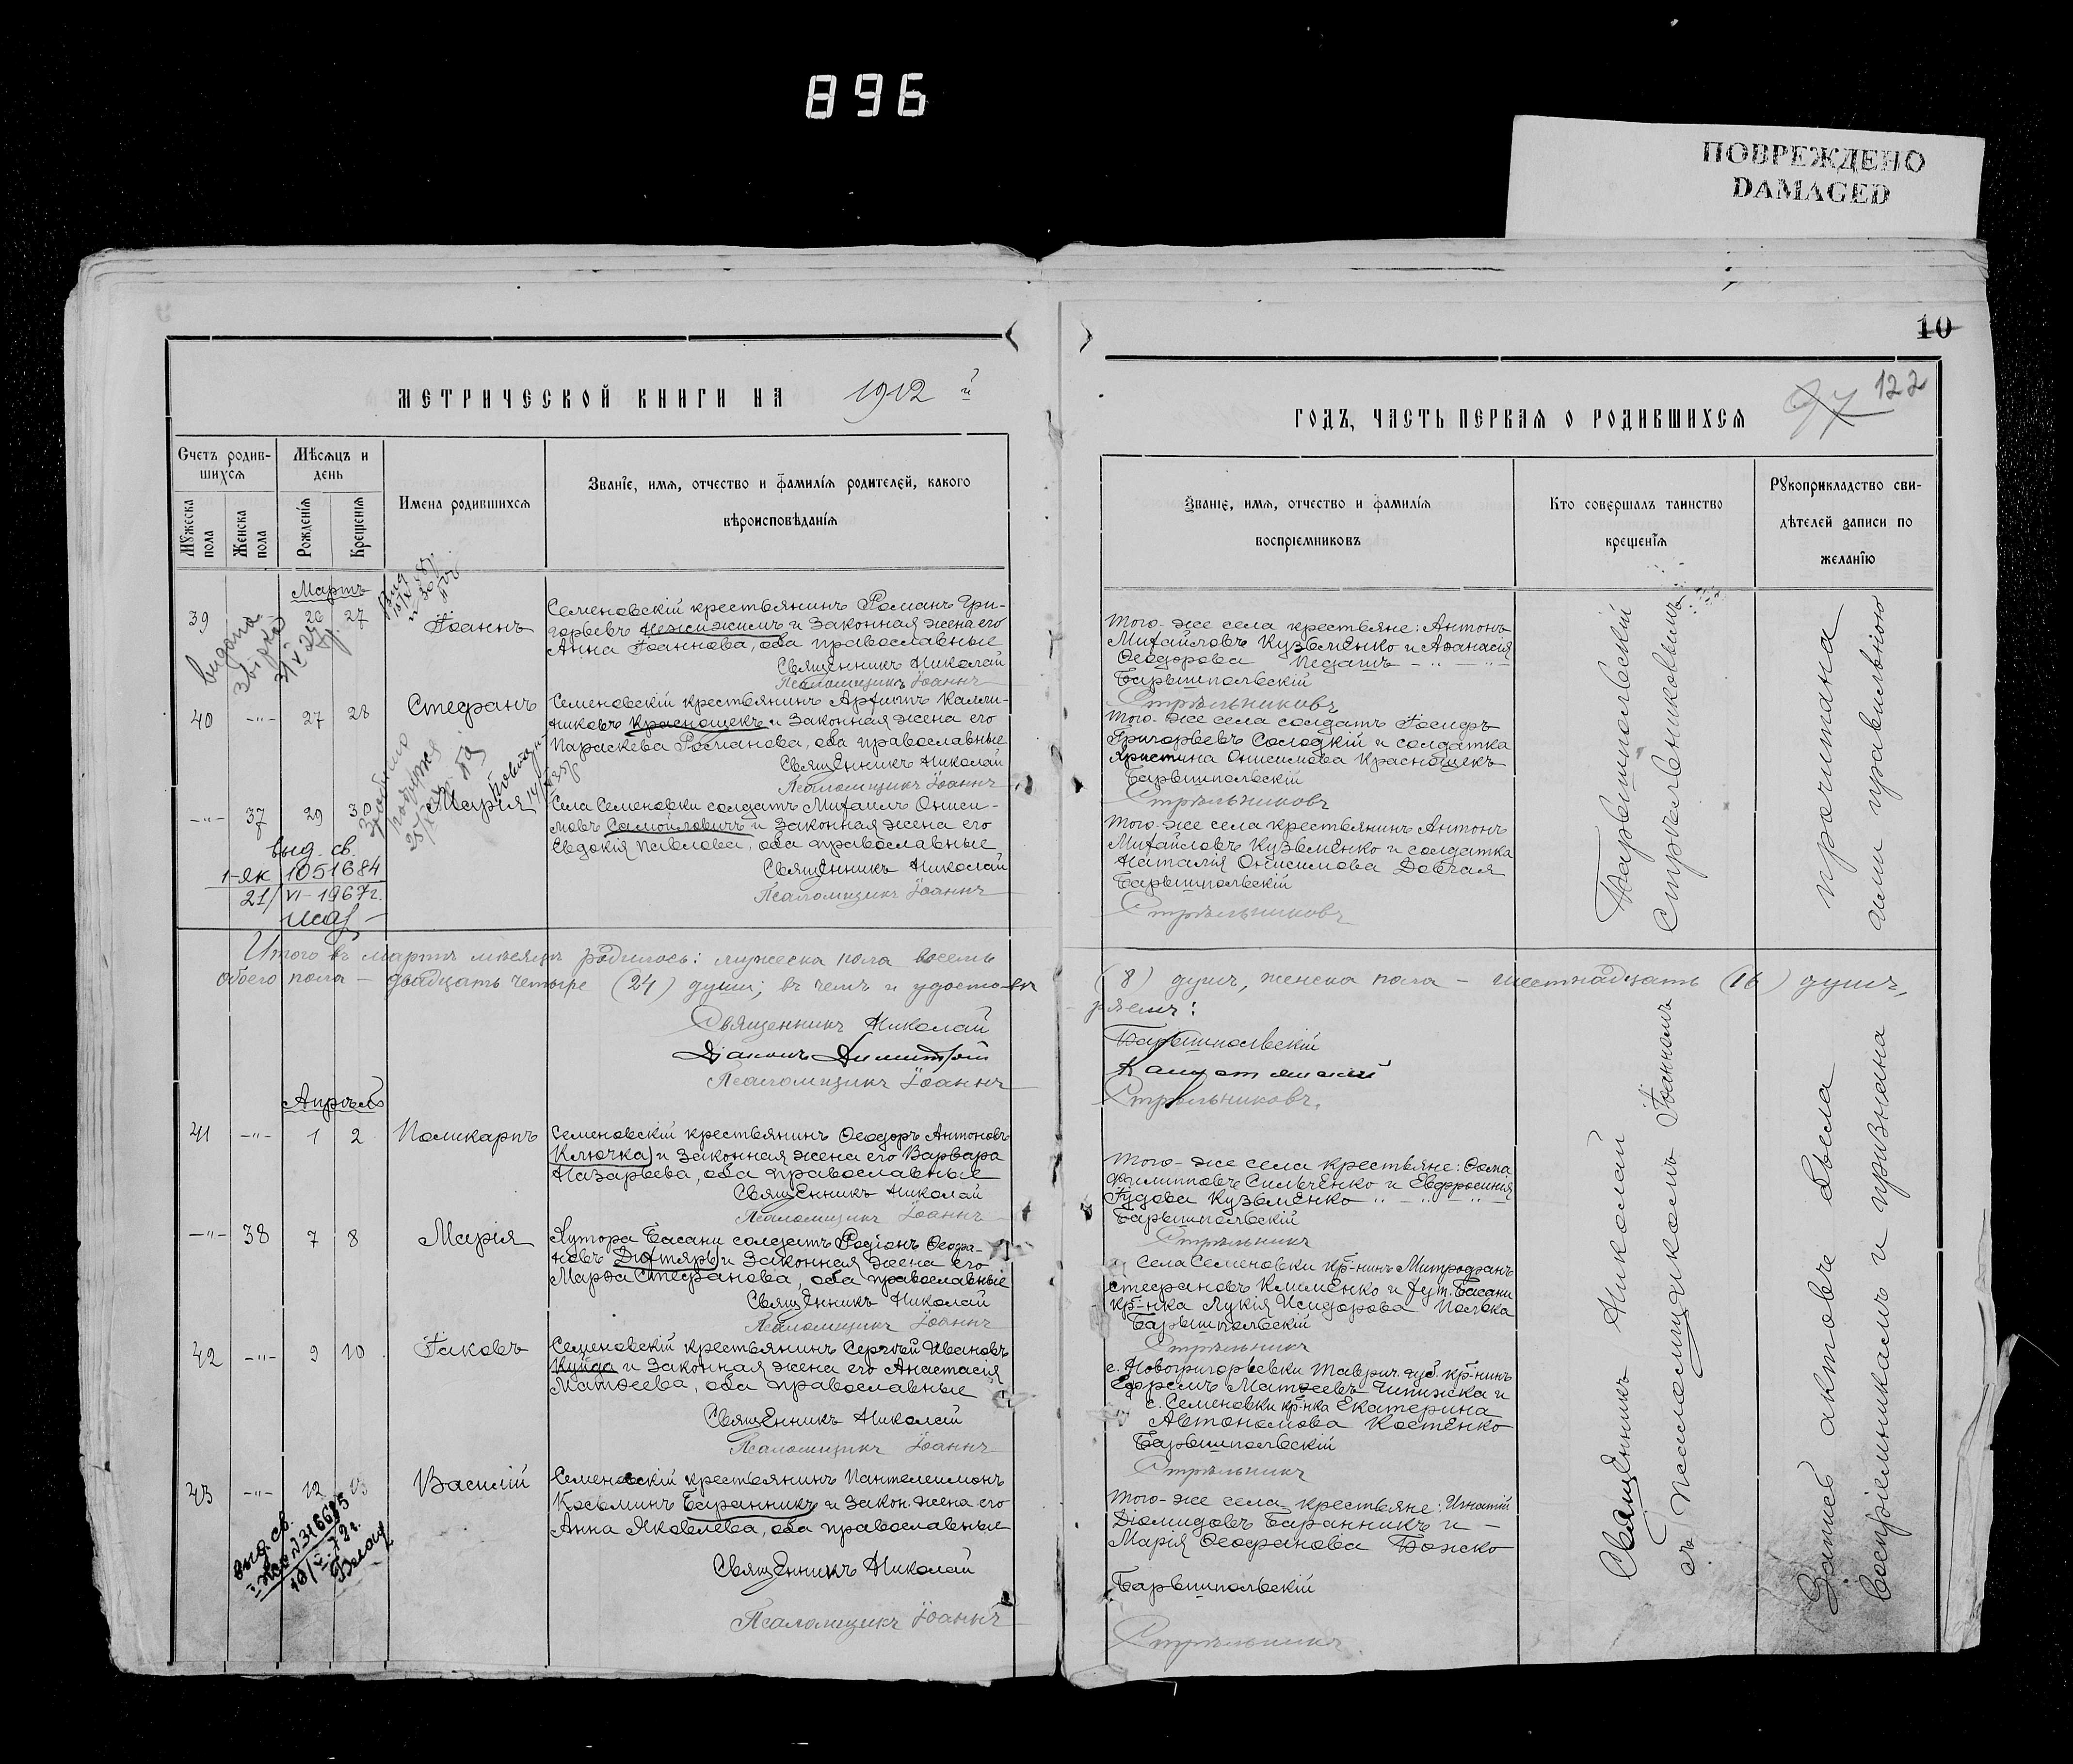 896
ПОВРЕЖДЕНО
DAMAGED
10
МЕТРИЧЕСКОЙ КНИГИ НА 1912 й
ГОДЪ, ЧАСТЬ ПЕРВАЯ О РОДИВШИХСЯ
97 122
Счетъ родив-
шихся
Мѣсяцъ и
день
Мужеска
пола
Женска
пола
Рожденія
Крещенія
Имена родившихся
Званіе, имя, отчество и фамилія родителей, какого
вѣроисповѣданія
Званіе, имя, отчество и фамилія
воспріемниковъ
Кто совершалъ таинство
крещенія
Рукоприкладство сви-
дѣтелей записи по
желанію
Мартъ
39 26 27 Іоаннъ
Семеновскій крестьянинъ Романъ Гри-
горьевъ Нежижимъ и законная жена его
Анна Іоаннова, оба православные
Священникъ Николай
Псаломщикъ Іоаннъ
Того-же села крестьяне: Антонъ
Михайловъ Кузьменко и Аѳанасія
Ѳеодорова Педашъ
Барышпольскій
Стрѣльниковъ
видана
40 -"- 27 28 Стефанъ
Семеновскій крестьянинъ Архиппъ Калли-
никовъ Краснощекъ и законная жена его
Параскева Романова, оба православные
Священникъ Николай
Псаломщикъ Іоаннъ
Того-же села солдатъ Іосифъ
Григорьевъ Солодкій и солдатка
Христина Онисимова Краснощекъ
Барышпольскій
Стрѣльниковъ
-"- 37 29 30 Марія
Села Семеновки солдатъ Михаилъ Ониси-
мовъ Самойловичъ и законная жена его
Евдокія Павлова, оба православные
Священникъ Николай
Псаломщикъ Іоаннъ
Того-же села крестьянинъ Антонъ
Михайловъ Кузьменко и солдатка
Наталія Онисимова Довгая
Барышпольскій
Стрѣльниковъ
выд. св.
1-як 1051684
21/VI-1967г.
Итого въ мартѣ мѣсяцѣ родилось: мужеска пола восемь (8) душъ, женска пола – шестнадцать (16) душъ,
обоего пола – двадцать четыре (24) души; въ чемъ и удостовѣ-
ряемъ:
Священникъ Николай Барышпольскій
Діаконъ Димитрій
Псаломщикъ Іоаннъ Стрѣльниковъ.
Апрѣль
41 -"- 1 2 Поликарпъ
Семеновскій крестьянинъ Ѳеодоръ Антоновъ
Ключка и законная жена его Варвара
Назарьева, оба православные
Священникъ Николай
Псаломщикъ Іоаннъ
Того-же села крестьяне: Ѳома
Филипповъ Сильченко и Евфросинія
Іудова Кузьменко
Барышпольскій
Стрѣльникъ
-"- 38 7 8 Марія
Хутора Басани солдатъ Родіонъ Ѳеофа-
новъ Дихтярь и законная жена его
Марѳа Стефанова, оба православные
Священникъ Николай
Псаломщикъ Іоаннъ
Села Семеновки кр-нинъ Митрофанъ
Стефановъ Клименко и хут. Басани
кр-нка Лукія Исидорова Полька
Барышпольскій
Стрѣльникъ
42 -"- 9 10 Іаковъ
Семеновскій крестьянинъ Сергѣй Ивановъ
Куйда и законная жена его Анастасія
Матѳеева, оба православные
Священникъ Николай
Псаломщикъ Іоаннъ
с. Новогригорьевки Таврич. губ. кр-нинъ
Ефремъ Матѳеевъ Чепижка и
с. Семеновки кр-нка Екатерина
Автономова Костенко
Барышпольскій
Стрѣльникъ
43 -"- 12 13 Василій
Семеновскій крестьянинъ Пантелеимонъ
Косьминъ Баранникъ и закон. жена его
Анна Яковлева, оба православные
Священникъ Николай
Псаломщикъ Іоаннъ
Того-же села крестьяне: Игнатій
Діомидовъ Баранникъ и –
Марія Ѳеофанова Божко
Барышпольскій
Стрѣльникъ
выд. св.
Священникъ Николай Барышпольскій
съ Псаломщикомъ Іоанномъ Стрѣльниковымъ
Запись актовъ была прочитана
воспріемникамъ и признана ими правильною